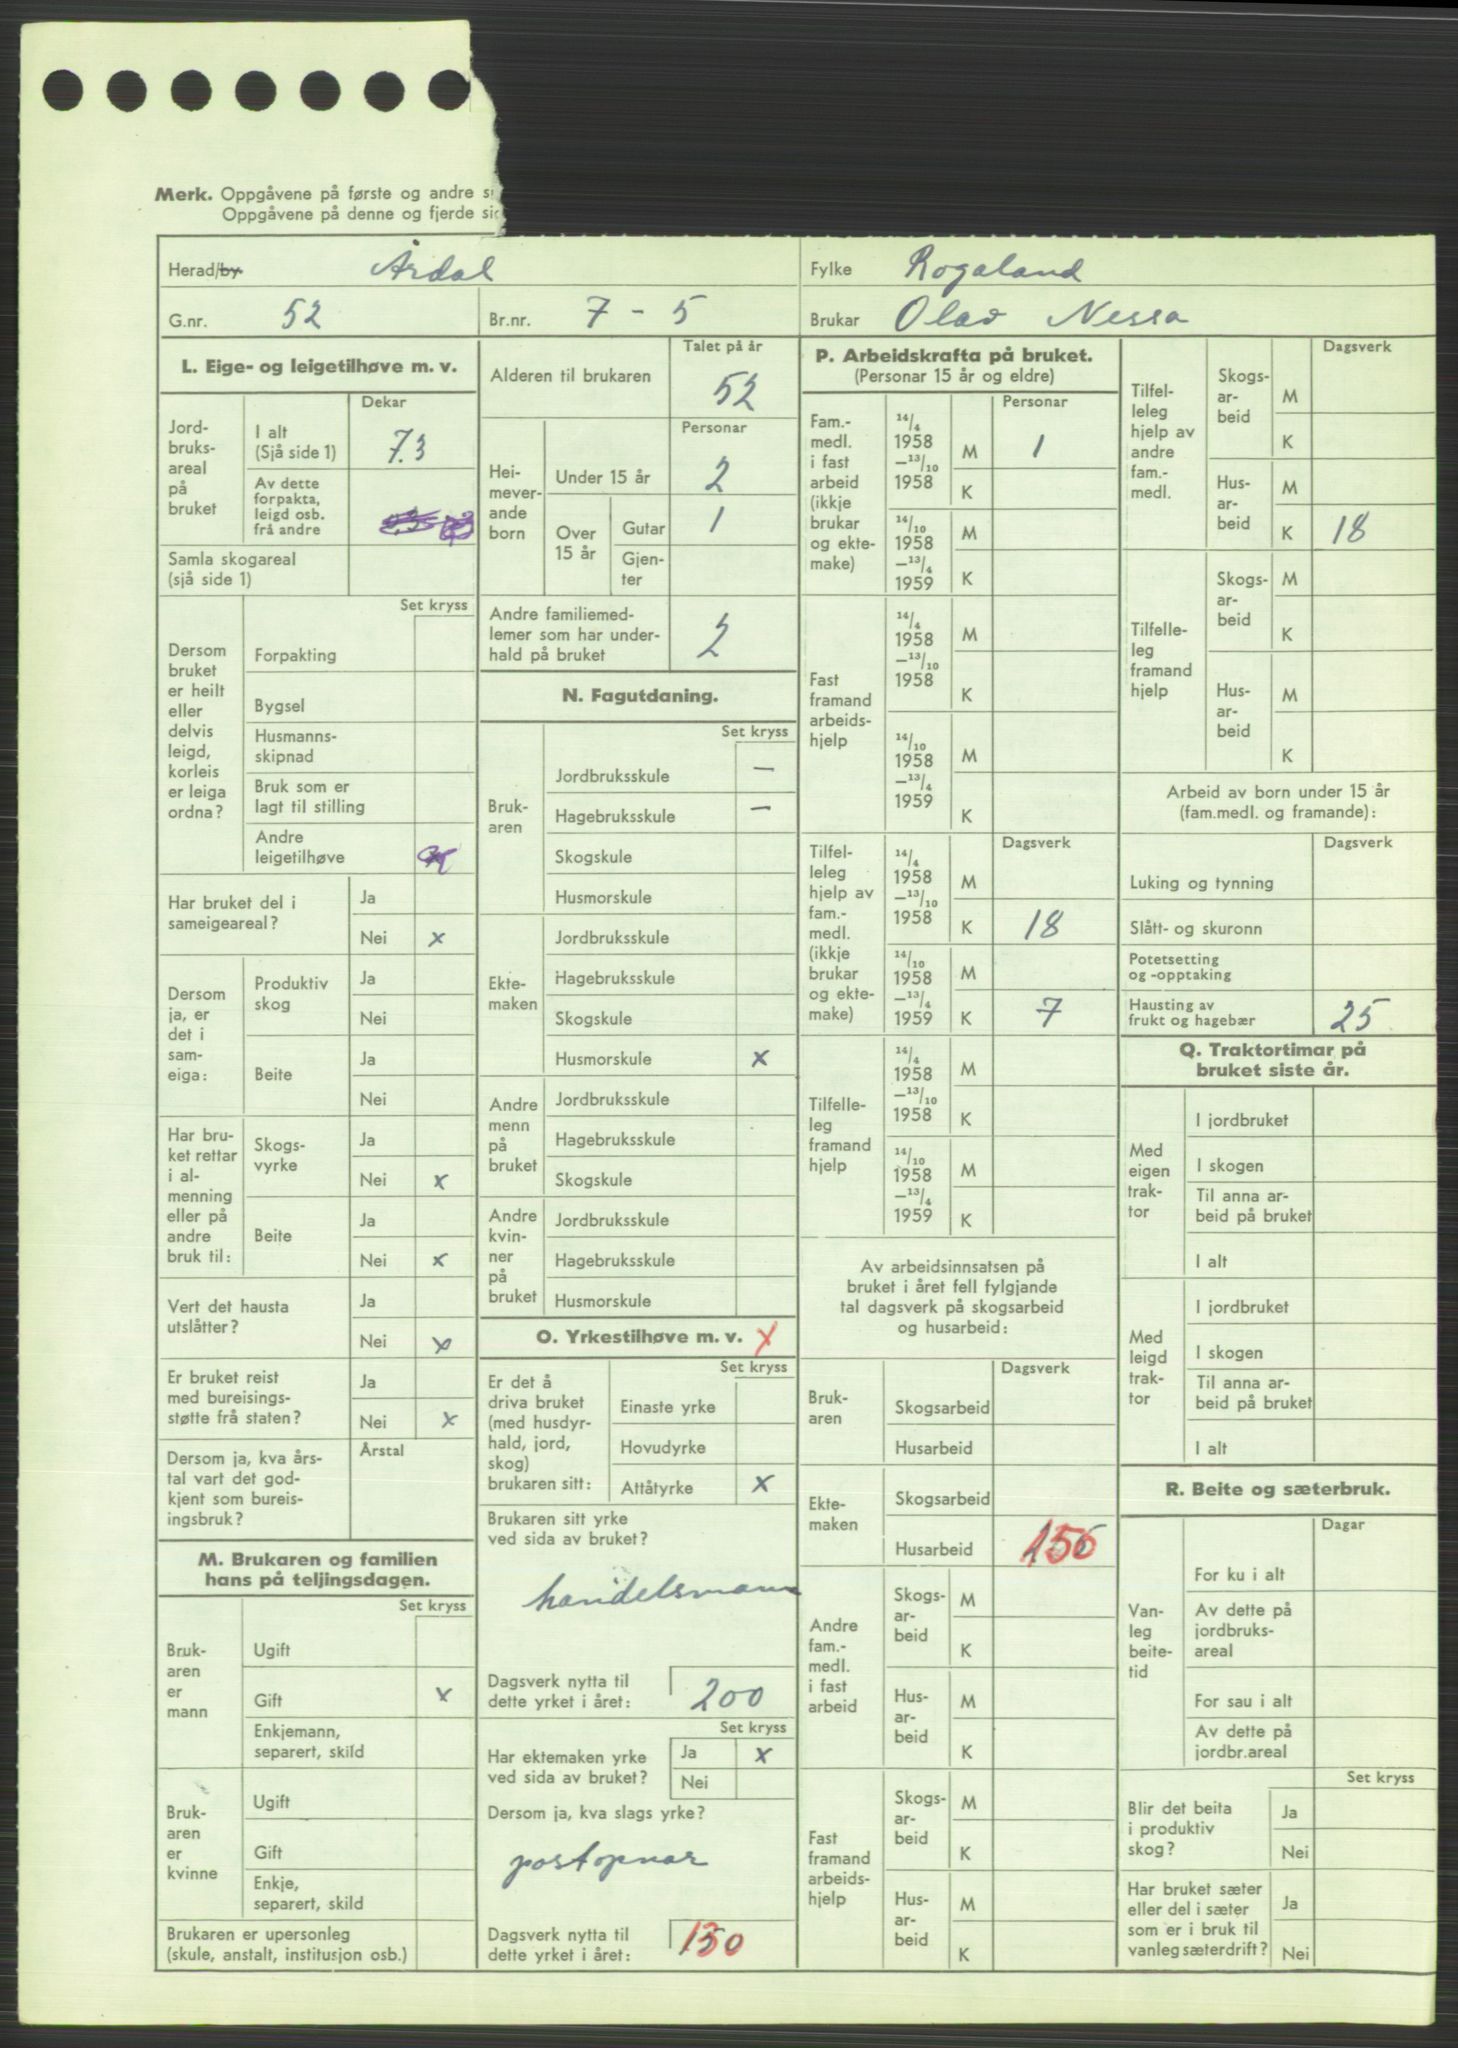 Merk. Oppgåvene på første og andre s
Oppgåvene på denne og fjerde sid
Herad/by Årdal
Fylke Rogaland
G.nr. 52
Br.nr. 7 - 5
Brukar Olav Nessa
L. Eige- og leigetilhøve m. v.
Dekar
Jord-
bruks-
areal
på
bruket
I alt
(Sjå side 1) 7.3
Av dette
forpakta,
leigd osb.
frå andre
Samla skogareal
(sjå side 1)
Set kryss
Dersom
bruket
er heilt
eller
delvis
leigd,
korleis
er leiga
ordna?
Forpakting
Bygsel
Husmanns-
skipnad
Bruk som er
lagt til stilling
Andre
leigetilhøve
Har bruket del i
sameigeareal?
Ja
Nei x
Dersom
ja, er
det i
sam-
eiga:
Produktiv
skog
Ja
Nei
Beite
Ja
Nei
Har bru-
ket rettar
i al-
menning
eller på
andre
bruk til:
Skogs-
vyrke
Ja
Nei x
Beite
Ja
Nei x
Vert det hausta
utslåtter?
Ja
Nei x
Er bruket reist
med bureisings-
støtte frå staten?
Ja
Nei x
Dersom ja, kva års-
tal vart det god-
kjent som bureis-
ingsbruk?
Årstal
M. Brukaren og familien
hans på teljingsdagen.
Set kryss
Bruk-
aren
er
mann
Ugift
Gift x
Enkjemann,
separert, skild
Bruk-
aren
er
kvinne
Ugift
Gift
Enkje,
separert, skild
Brukaren er upersonleg
(skule, anstalt, institusjon osb.)
Talet på år
Alderen til brukaren 52
Personar
Hei-
mever-
ande
born
Under 15 år 2
Over
15 år
Gutar 1
Gjen-
ter
Andre familiemed-
lemer som har under-
hald på bruket 2
N. Fagutdaning.
Set kryss
Bruk-
aren
Jordbruksskule —
Hagebruksskule —
Skogskule
Husmorskule
Ekte-
maken
Jordbruksskule
Hagebruksskule
Skogskule
Husmorskule x
Andre
menn
på
bruket
Jordbruksskule
Hagebruksskule
Skogskule
Andre
kvin-
ner
på
bruket
Jordbruksskule
Hagebruksskule
Husmorskule
O. Yrkestilhøve m. v. x
Set kryss
Er det å
driva bruket
(med husdyr-
hald, jord,
skog)
brukaren sitt:
Einaste yrke
Hovudyrke
Attåtyrke x
Brukaren sitt yrke
ved sida av bruket?
handelsmann
Dagsverk nytta til
dette yrket i året: 200
Set kryss
Har ektemaken yrke
ved sida av bruket?
Ja x
Nei
Dersom ja, kva slags yrke?
postopnar
Dagsverk nytta til
dette yrket i året:
P. Arbeidskrafta på bruket.
(Personar 15 år og eldre)
Personar
Fam.-
medl.
i fast
arbeid
(ikkje
brukar
og ekte-
make)
14/4
1958
—13/10
1958
M 1
K
14/10
1958
—13/4
1959
M
K
Fast
framand
arbeids-
hjelp
14/4
1958
—13/10
1958
M
K
14/10
1958
—13/4
1959
M
K
Dagsverk
Tilfel-
leleg
hjelp av
fam.-
medl.
(ikkje
brukar
og ekte-
make)
14/4
1958
—13/10
1958
M
K 18
14/10
1958
—13/4
1959
M
K 7
Tilfelle-
leg
framand
hjelp
14/4
1958
—13/10
1958
M
K
14/10
1958
—13/4
1959
M
K
Av arbeidsinnsatsen på
bruket i året fell fylgjande
tal dagsverk på skogsarbeid
og husarbeid:
Dagsverk
Bruk-
aren
Skogsarbeid
Husarbeid
Ekte-
maken
Skogsarbeid
Husarbeid
Andre
fam.-
medl.
i fast
arbeid
Skogs-
ar-
beid
M
K
Hus-
ar-
beid
M
K
Fast
framand
arbeids-
hjelp
Skogs-
ar-
beid
M
K
Hus-
ar-
beid
M
K
Dagsverk
Tilfel-
leleg
hjelp av
andre
fam.-
medl.
Skogs-
ar-
beid
M
K
Hus-
ar-
beid
M
K 18
Tilfelle-
leg
framand
hjelp
Skogs-
ar-
beid
M
K
Hus-
ar-
beid
M
K
Arbeid av born under 15 år
(fam.medl. og framande):
Dagsverk
Luking og tynning
Slått- og skuronn
Potetsetting
og -opptaking
Hausting av
frukt og hagebær 25
Q. Traktortimar på
bruket siste år.
Med
eigen
trak-
tor
I jordbruket
I skogen
Til anna ar-
beid på bruket
I alt
Med
leigd
trak-
tor
I jordbruket
I skogen
Til anna ar-
beid på bruket
I alt
R. Beite og sæterbruk.
Dagar
Van-
leg
beite-
tid
For ku i alt
Av dette på
jordbruks-
areal
For sau i alt
Av dette på
jordbr.areal
Set kryss
Blir det beita
i produktiv
skog?
Ja
Nei
Har bruket sæter
eller del i sæter
som er i bruk til
vanleg sæterdrift?
Ja
Nei